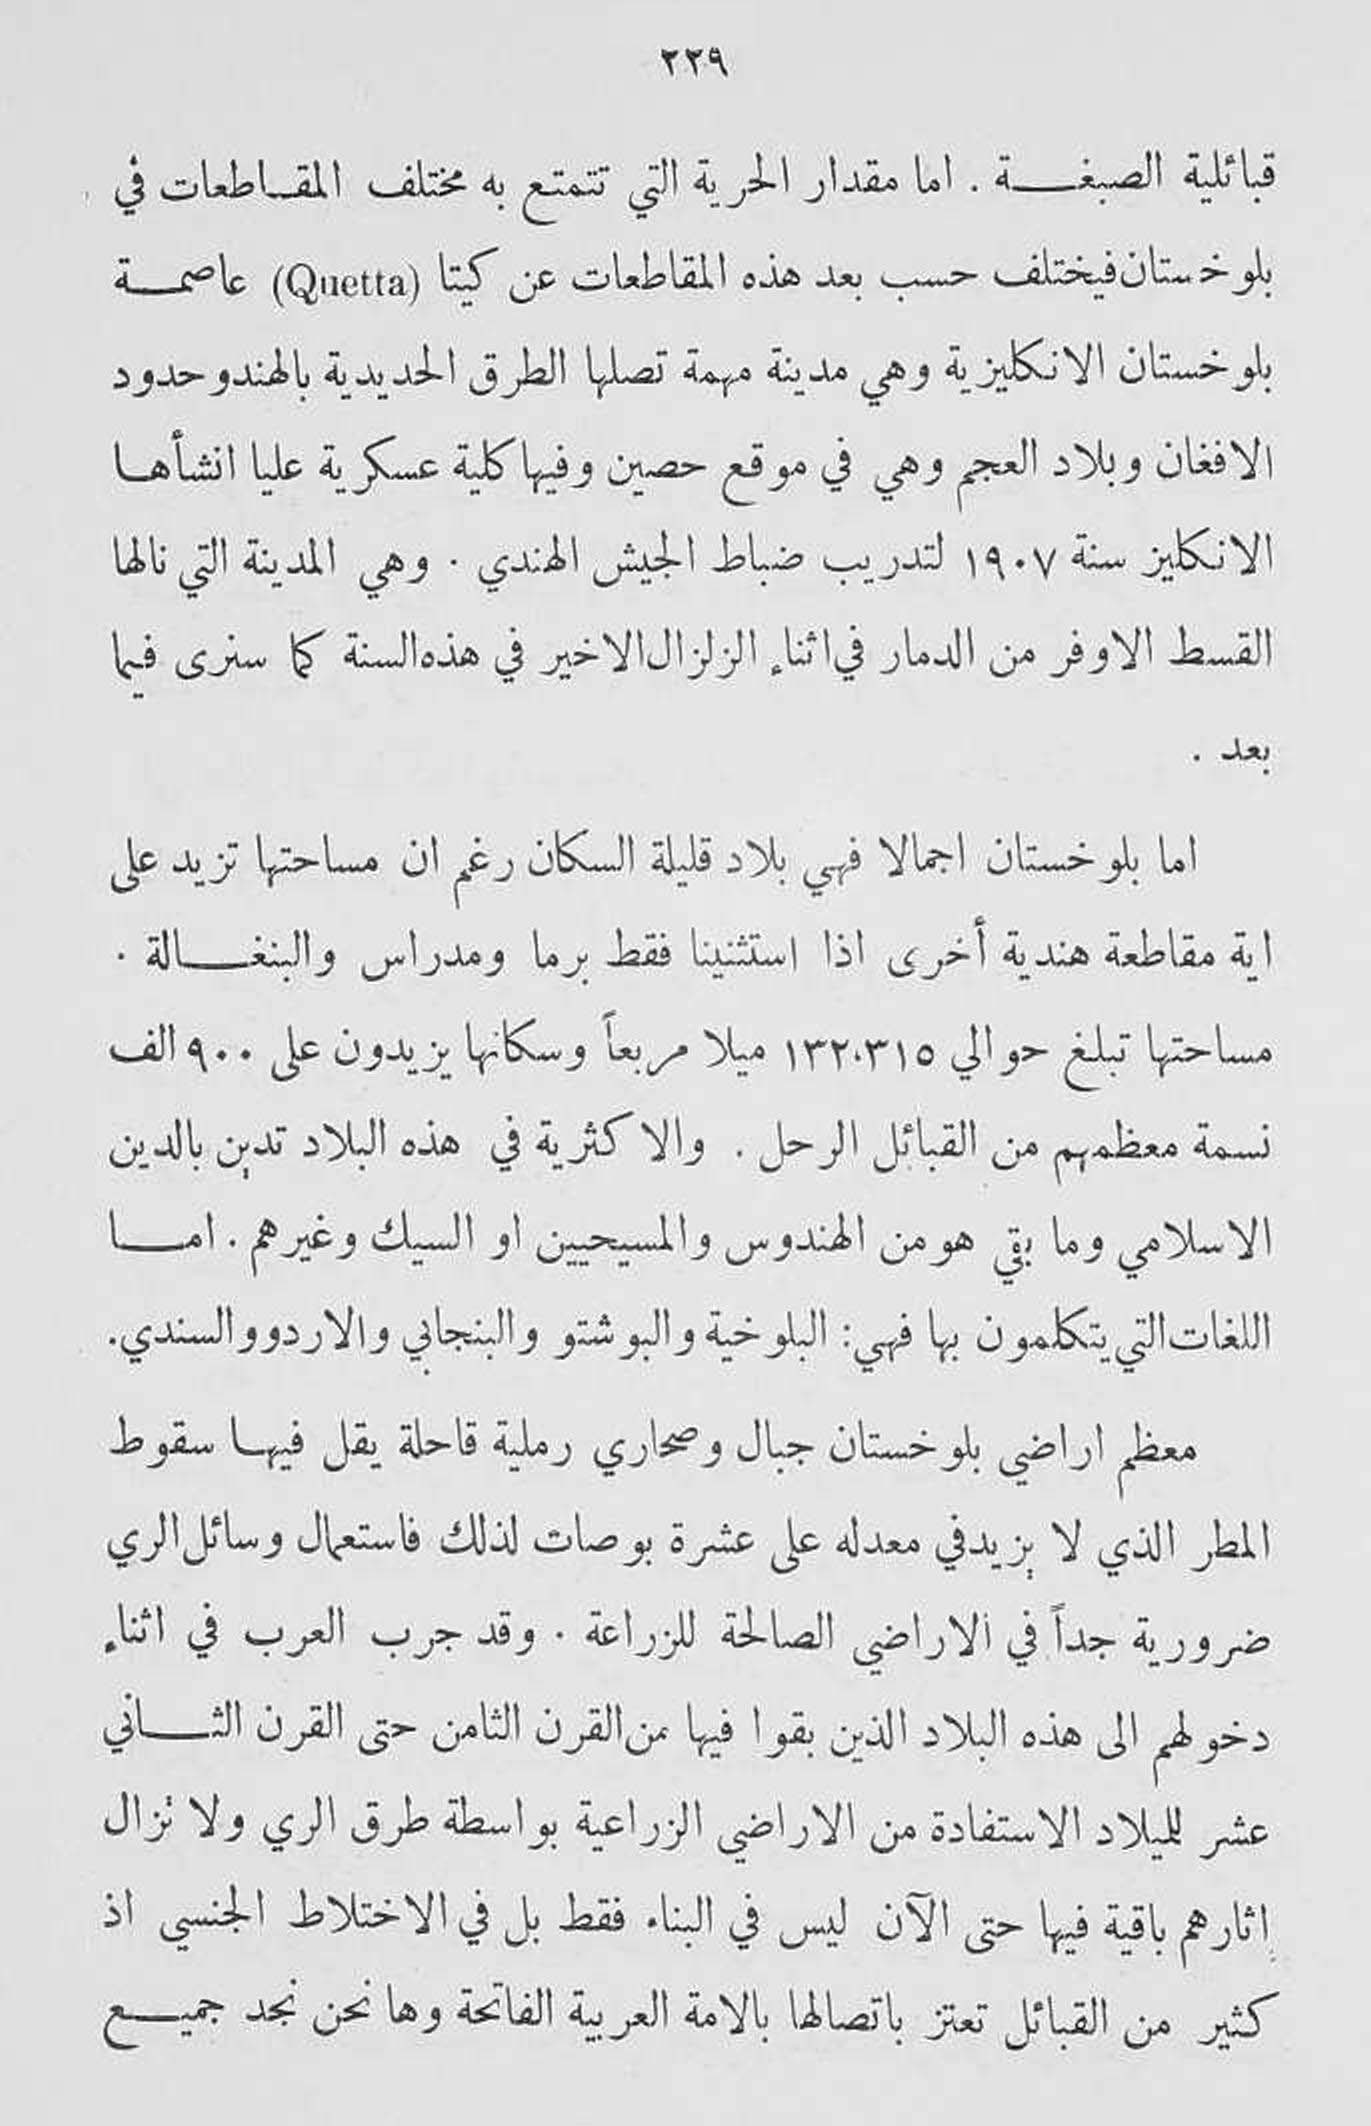 ٢٣٩
قبائلية الصبغة . اما مقدار الحرية التي تتمتع به مختلف المقاطعات في
بلوخستان فيختلف حسب بعد هذه المقاطعات عن كيتا (Quetta) عاصمة
بلوخستان الانكليزية وهي مدينة مهمة تصلها الطرق الحديدية بالهند وحدود
الافغان وبلاد العجم وهي في موقع حصين وفيها كلية عسكرية عليا انشأها
الانكليز سنة ١٩٠٧ لتدريب ضباط الجيش الهندي . وهي المدينة التي نالها
القسط الاوفر من الدمار في اثناء الزلزال الاخير في هذه السنة كما سنرى فيما
بعد .
اما بلوخستان اجمالا فهي بلاد قليلة السكان رغم ان مساحتها تزيد على
اية مقاطعة هندية أخرى اذا استثنينا فقط برما ومدراس والبنغالة .
مساحتها تبلغ حوالي ١٣٢،٣١٥ ميلا مربعاً وسكانها يزيدون على ٩٠٠ الف
نسمة معظمهم من القبائل الرحل . والاكثرية في هذه البلاد تدين بالدين
الاسلامي وما بقي هو من الهندوس والمسيحيين او السيك وغيرهم . اما
اللغات التي يتكلمون بها فهي : البلوخية والبوشتو والبنجابي والاردو والسندي.
معظم اراضي بلوخستان جبال وصحاري رملية قاحلة يقل فيها سقوط
المطر الذي لا يزيد في معدله على عشرة بوصات لذلك فاستعمال وسائل الري
ضرورية جداً في الاراضي الصالحة للزراعة . وقد جرب العرب في اثناء
دخولهم الى هذه البلاد الذين بقوا فيها من القرن الثامن حتى القرن الثاني
عشر للميلاد الاستفادة من الاراضي الزراعية بواسطة طرق الري ولا تزال
اثارهم باقية فيها حتى الآن ليس في البناء فقط بل في الاختلاط الجنسي اذ
كثير من القبائل تعتز باتصالها بالامة العربية الفاتحة وها نحن نجد جميع